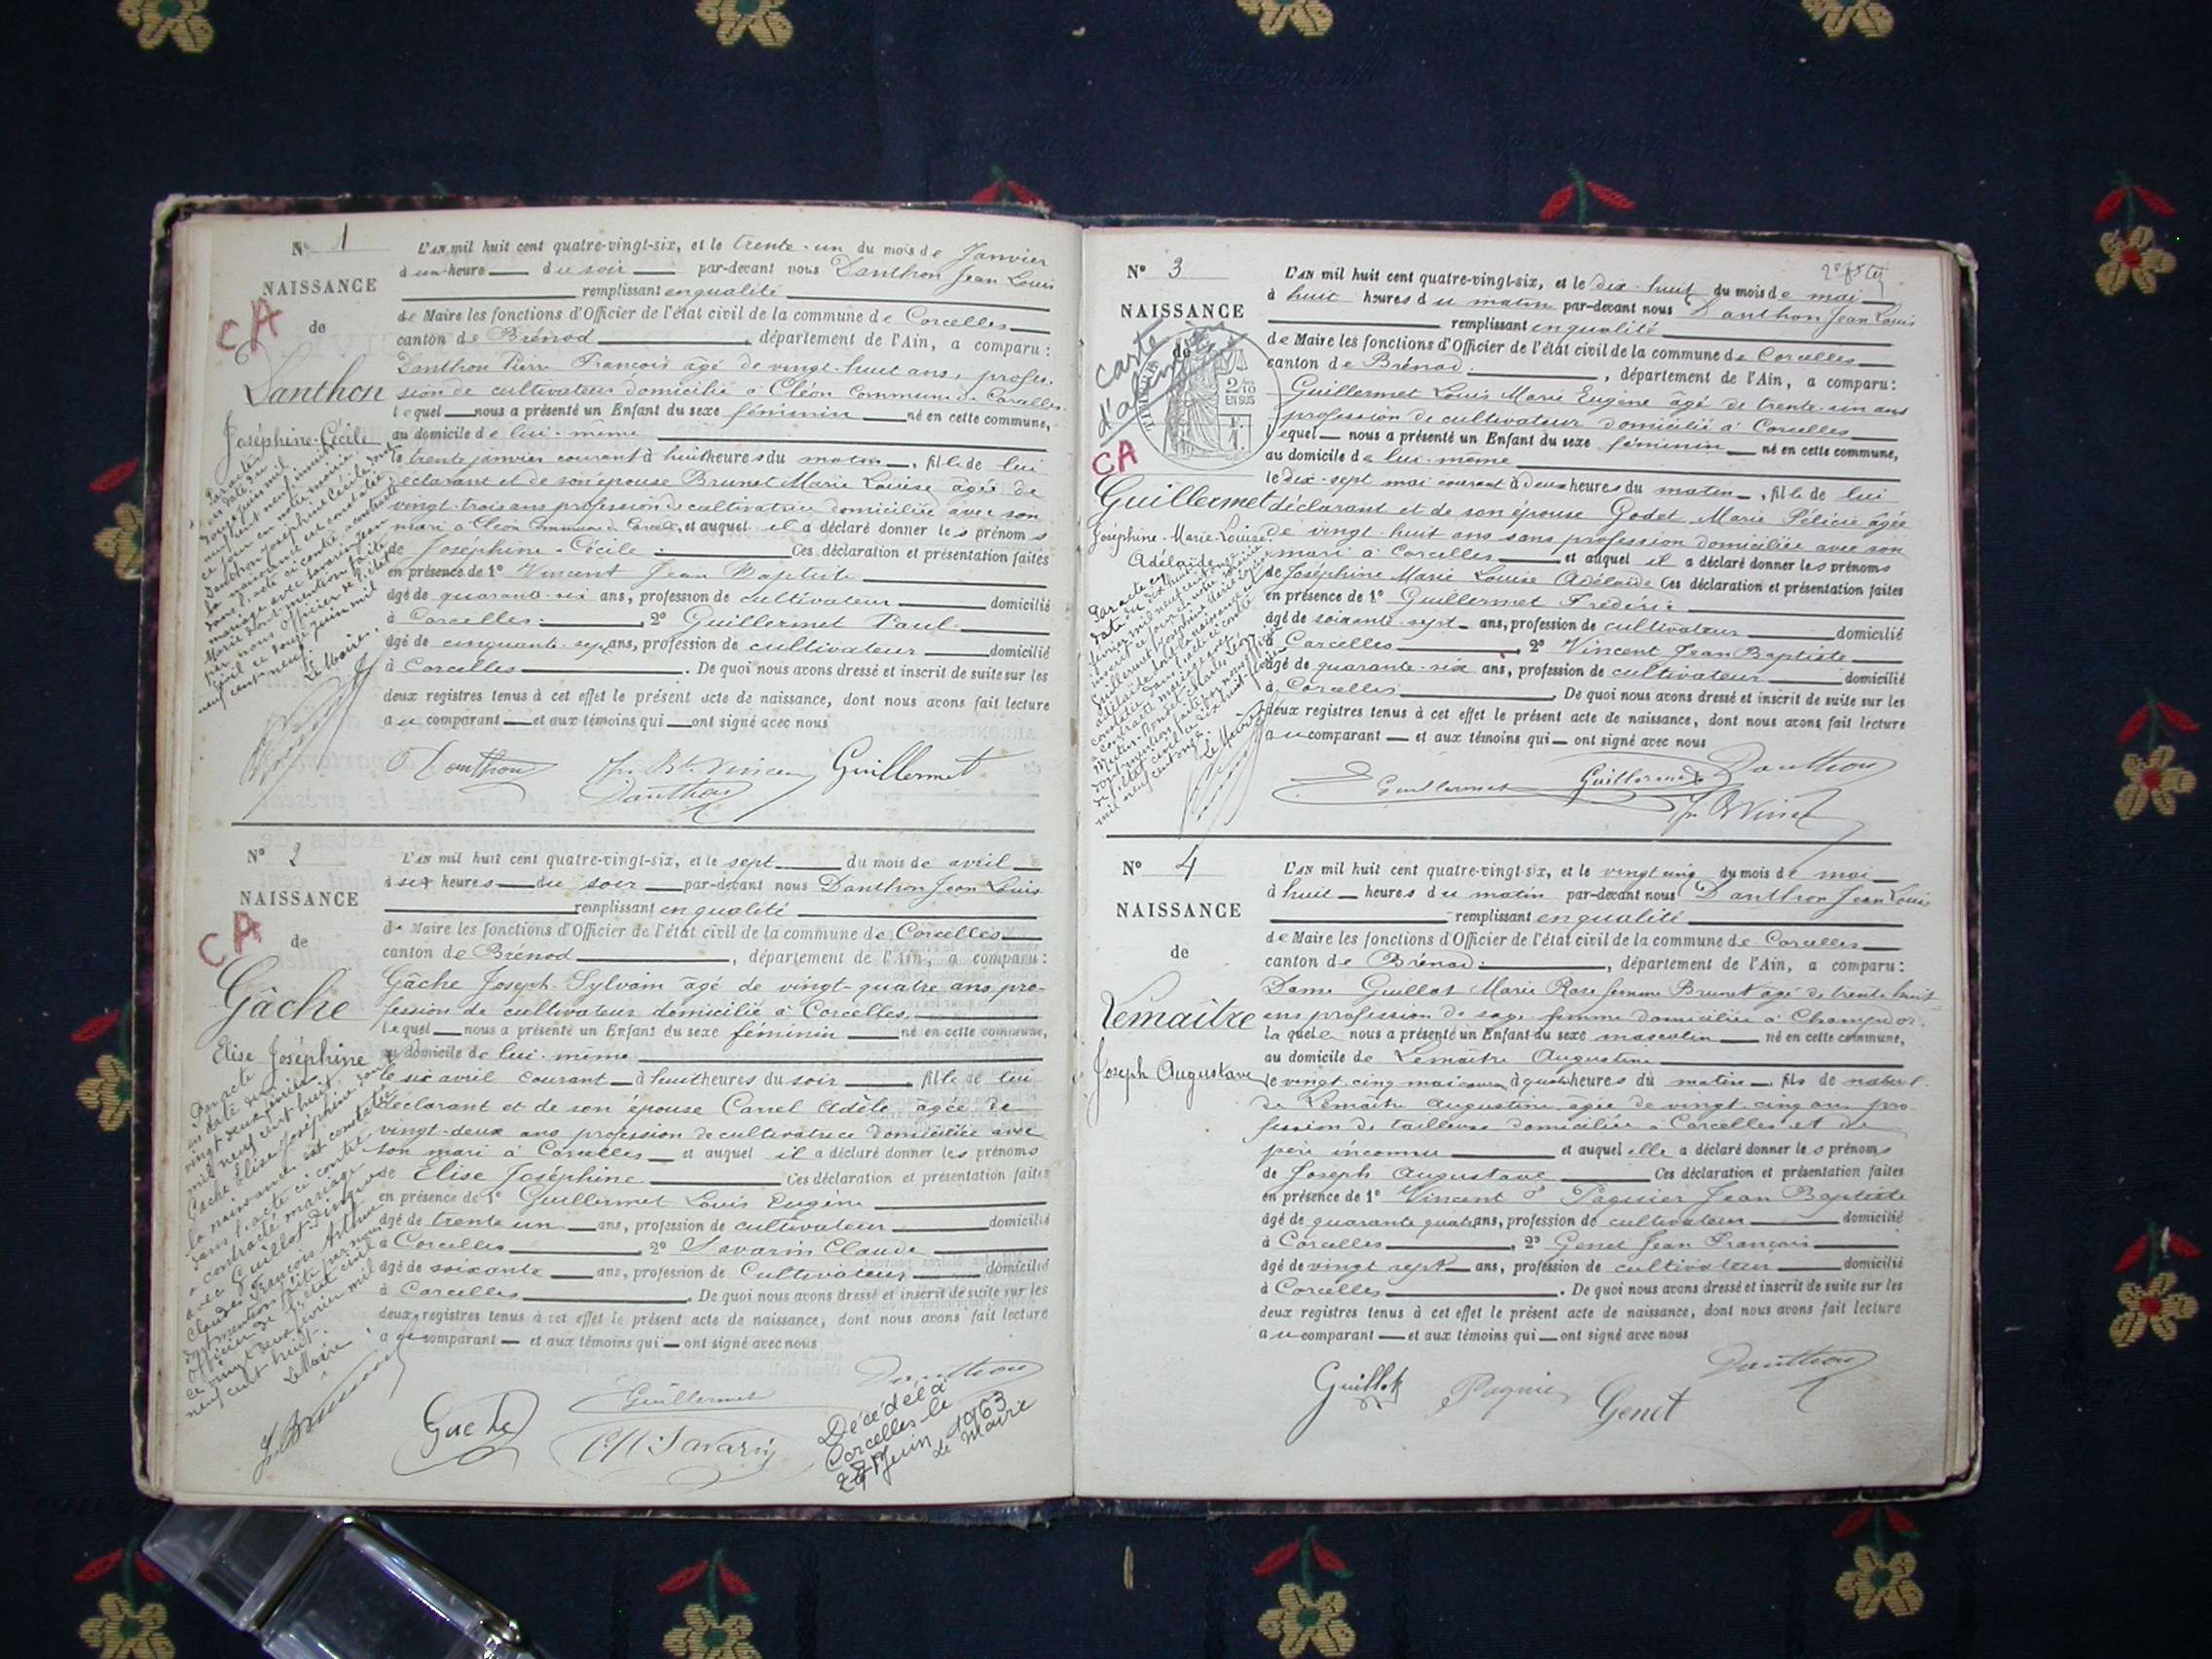 N° 1
NAISSANCE
CA
de
Danthon
Joséphine-Cécile
L'AN mil huit cent quatre-vingt-six, et le trente-un du mois de Janvier
à un heure du soir par-devant nous Danthon Jean Louis
remplissant en qualité
de Maire les fonctions d'Officier de l'état civil de la commune de Corcelles
canton de Brénod, département de l'Ain, a comparu:
Danthon Pierre François âgé de vingt-huit ans, profes-
sion de cultivateur domicilié à Cléon Commune de Corcelles
lequel nous a présenté un Enfant du sexe féminin né en cette commune,
au domicile de lui-même
le trente janvier courant à huit heures du matin, fille de lui
déclarant et de son épouse Brunet Marie Louise âgée de
vingt-trois ans profession de cultivatrice domiciliée avec son
mari à Cléon Commune de Corcelles, et auquel il a déclaré donner les prénoms
de Joséphine-Cécile. Ces déclaration et présentation faites
en présence de 1° Vincent Jean Baptiste
âgé de quarante-six ans, profession de cultivateur domicilié
à Corcelles, 2° Guillermet Paul
âgé de cinquante-sept ans, profession de cultivateur domicilié
à Corcelles. De quoi nous avons dressé et inscrit de suite sur les
deux registres tenus à cet effet le présent acte de naissance, dont nous avons fait lecture
au comparant et aux témoins qui ont signé avec nous
Par acte
en date du
douze juin mil
neuf cent neuf inscrit
ce jour en notre mairie
Danthon Joséphine Cécile dont
la naissance est constatée
dans l'acte ci contre a contracté
mariage avec Savarin Jean
Marie dont mention faite
par nous Officier de l'état
civil ce douze juin mil
neuf cent neuf.
Le Maire.
Danthon Guillermet
Danthon
N° 2
NAISSANCE
CA
de
Gâche
Elise Joséphine
L'AN mil huit cent quatre-vingt-six, et le sept du mois de avril
à six heures du soir par-devant nous Danthon Jean Louis
remplissant en qualité
de Maire les fonctions d'Officier de l'état civil de la commune de Corcelles
canton de Brénod, département de l'Ain, a comparu:
Gâche Joseph Sylvain âgé de vingt-quatre ans pro-
fession de cultivateur domicilié à Corcelles
lequel nous a présenté un Enfant du sexe féminin né en cette commune,
au domicile de lui-même
le six avril courant à huit heures du soir, fille de lui
déclarant et de son épouse Carrel Adèle âgée de
vingt-deux ans profession de cultivatrice domiciliée avec
son mari à Corcelles et auquel il a déclaré donner les prénoms
de Elise Joséphine Ces déclaration et présentation faites
en présence de 1° Guillermet Louis Eugène
âgé de trente un ans, profession de cultivateur domicilié
à Corcelles, 2° Savarin Claude
âgé de soixante ans, profession de Cultivateur domicilié
à Corcelles. De quoi nous avons dressé et inscrit de suite sur les
deux registres tenus à cet effet le présent acte de naissance, dont nous avons fait lecture
au comparant et aux témoins qui ont signé avec nous
Par acte
en date du
vingt deux février
mil neuf cent huit
Gache Elise Joséphine dont
la naissance est constatée
dans l'acte ci contre
a contracté mariage
avec Guillot
Claude François Arthur
dont mention faite par nous
Officier de l'état civil
ce vingt deux février mil
neuf cent huit.
Le Maire
Gache Guillermet Danthon
Savarin
Décédé à
Corcelles le
Juin 1963
Le Maire
N° 3
NAISSANCE
de
carte
d'alimentation
2/10
EN SUS
CA
Guillermet
Joséphine-Marie-Louise-
Adélaïde
L'AN mil huit cent quatre-vingt-six, et le dix-huit du mois de mai
à huit heures du matin par-devant nous Danthon Jean Louis
remplissant en qualité
de Maire les fonctions d'Officier de l'état civil de la commune de Corcelles
canton de Brénod, département de l'Ain, a comparu:
Guillermet Louis Marie Eugène âgé de trente-un ans
profession de cultivateur domicilié à Corcelles
lequel nous a présenté un Enfant du sexe féminin né en cette commune,
au domicile de lui-même
le dix-sept mai courant à deux heures du matin, fille de lui
déclarant et de son épouse Godet Marie Félicie âgée
de vingt-huit ans sans profession domiciliée avec son
mari à Corcelles et auquel il a déclaré donner les prénoms
de Joséphine Marie Louise Adélaïde Ces déclaration et présentation faites
en présence de 1° Guillermet Frédéric
âgé de soixante-sept ans, profession de cultivateur domicilié
à Corcelles, 2° Vincent Jean Baptiste
âgé de quarante-six ans, profession de cultivateur domicilié
à Corcelles. De quoi nous avons dressé et inscrit de suite sur les
deux registres tenus à cet effet le présent acte de naissance, dont nous avons fait lecture
au comparant et aux témoins qui ont signé avec nous
Par acte en
date du dix huit
février mil neuf cent onze
inscrit ce jour en notre mairie
Guillermet Joséphine Marie Louise
Adélaïde dont la naissance est
constatée dans l'acte ci contre
a contracté mariage avec
dont mention faite par nous officier
de l'état civil ce dix huit février
mil neuf cent onze.
Le Maire
Guillermet Guillermet Danthon
N° 4
NAISSANCE
de
Lemaître
Joseph Augustave
L'AN mil huit cent quatre-vingt-six, et le vingt cinq du mois de mai
à huit heures du matin par-devant nous Danthon Jean Louis
remplissant en qualité
de Maire les fonctions d'Officier de l'état civil de la commune de Corcelles
canton de Brénod, département de l'Ain, a comparu:
Dame Guillot Marie Rose femme Brunet âgé de trente huit
ans profession de sage-femme domiciliée à Champdor
laquele nous a présenté un Enfant du sexe masculin né en cette commune,
au domicile de Lemaître Augustine
le vingt cinq mai courant à quatre heures du matin, fils de naturel
de Lemaître Augustine âgée de vingt-cinq ans pro-
fession de tailleuse domiciliée à Corcelles et de
père inconnu et auquel elle a déclaré donner les prénoms
de Joseph Augustave Ces déclaration et présentation faites
en présence de 1° Vincent d° Paquier Jean Baptiste
âgé de quarante quatre ans, profession de cultivateur domicilié
à Corcelles, 2° Genet Jean François
âgé de vingt sept ans, profession de cultivateur domicilié
à Corcelles. De quoi nous avons dressé et inscrit de suite sur les
deux registres tenus à cet effet le présent acte de naissance, dont nous avons fait lecture
au comparant et aux témoins qui ont signé avec nous
Guillot Paquier Genet Danthon